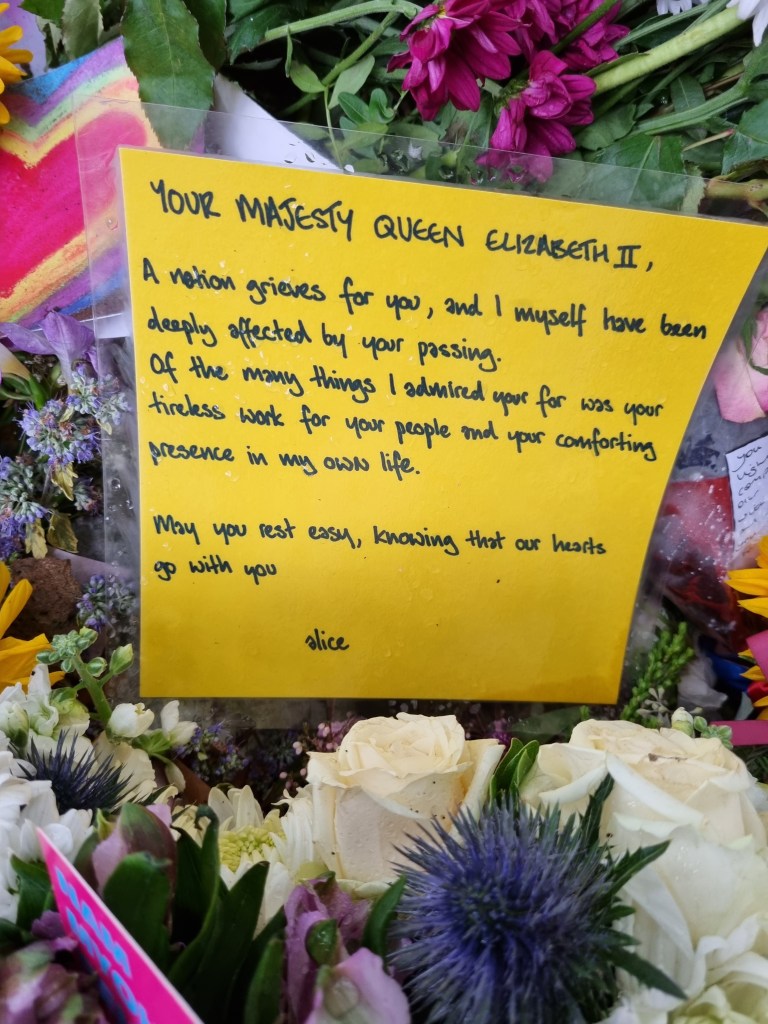 YOUR MAJESTY QUEEN ELIZABETH II,
A nation grieves for you, and I myself have been
deeply affected by your passing.
Of the many things I admired your for was your
tireless work for your people and your comforting
presence in my own life.
May you rest easy, knowing that our hearts
go with you
alice
you